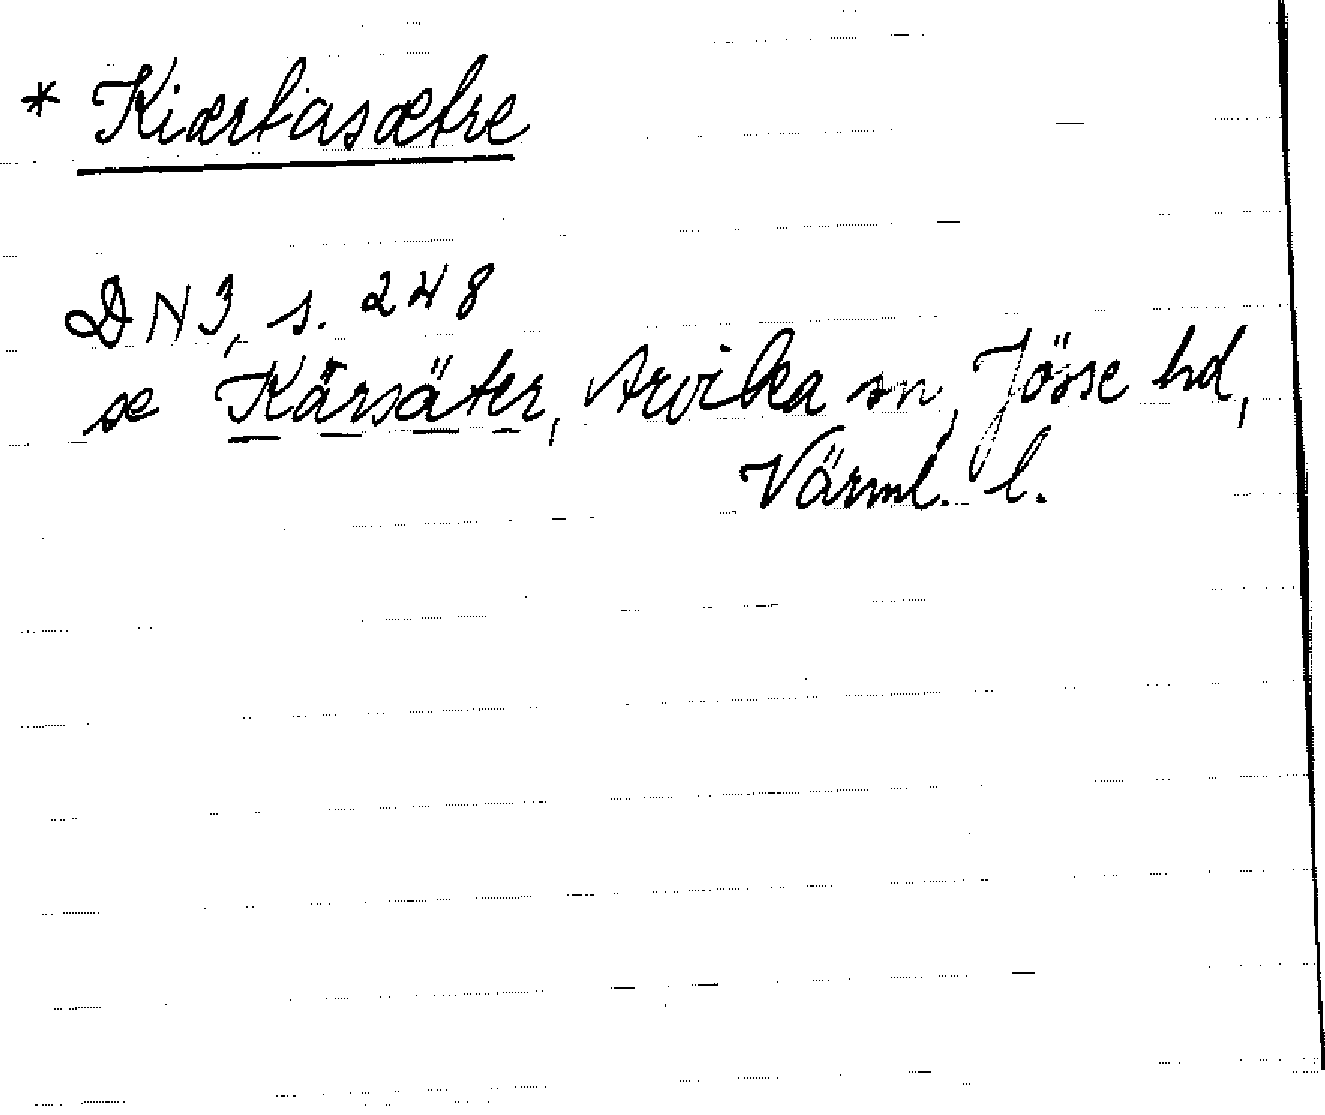 * Kiærtasætre
DN 3, s. 248
se Kärsäter, Arvika sn, Jösse hd,
Värml. l.